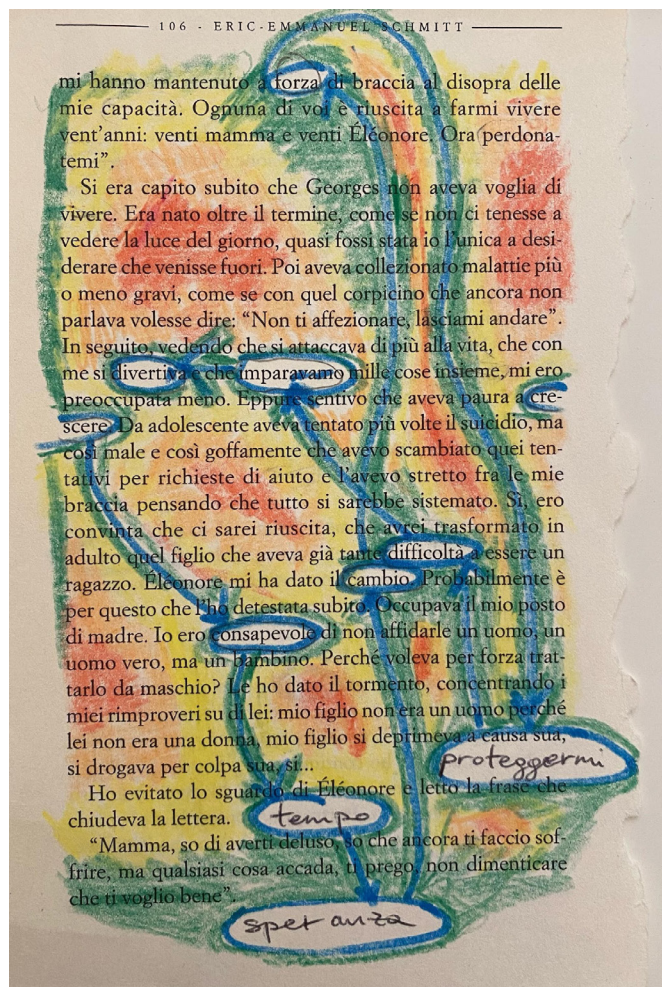 106 - ERIC-EMMANUEL SCHMITT
mi hanno mantenuto a forza di braccia al disopra delle
mie capacità. Ognuna di voi è riuscita a farmi vivere
vent'anni: venti mamma e venti Éléonore. Ora perdona-
temi”.
Si era capito subito che Georges non aveva voglia di
vivere. Era nato oltre il termine, come se non ci tenesse a
vedere la luce del giorno, quasi fossi stata io l'unica a desi-
derare che venisse fuori. Poi aveva collezionato malattie più
o meno gravi, come se con quel corpicino che ancora non
parlava volesse dire: “Non ti affezionare, lasciami andare”.
In seguito, vedendo che si attaccava di più alla vita, che con
me si divertiva e che imparavamo mille cose insieme, mi ero
preoccupata meno. Eppure sentivo che aveva paura a cre-
scere. Da adolescente aveva tentato più volte il suicidio, ma
così male e così goffamente che avevo scambiato quei ten-
tativi per richieste di aiuto e l'avevo stretto fra le mie
braccia pensando che tutto si sarebbe sistemato. Sì, ero
convinta che ci sarei riuscita, che avrei trasformato in
adulto quel figlio che aveva già tante difficoltà a essere un
ragazzo. Éléonore mi ha dato il cambio. Probabilmente è
per questo che l'ho detestata subito. Occupava il mio posto
di madre. Io ero consapevole di non affidarle un uomo, un
uomo vero, ma un bambino. Perché voleva per forza trat-
tarlo da maschio? Le ho dato il tormento, concentrando i
miei rimproveri su di lei: mio figlio non era un uomo perché
lei non era una donna, mio figlio si deprimeva a causa sua,
si drogava per colpa sua, sì...
proteggermi
Ho evitato lo sguardo di Éléonore e letto la frase che
chiudeva la lettera.
tempo
“Mamma, so di averti deluso, so che ancora ti faccio sof-
frire, ma qualsiasi cosa accada, ti prego, non dimenticare
che ti voglio bene”.
speranza